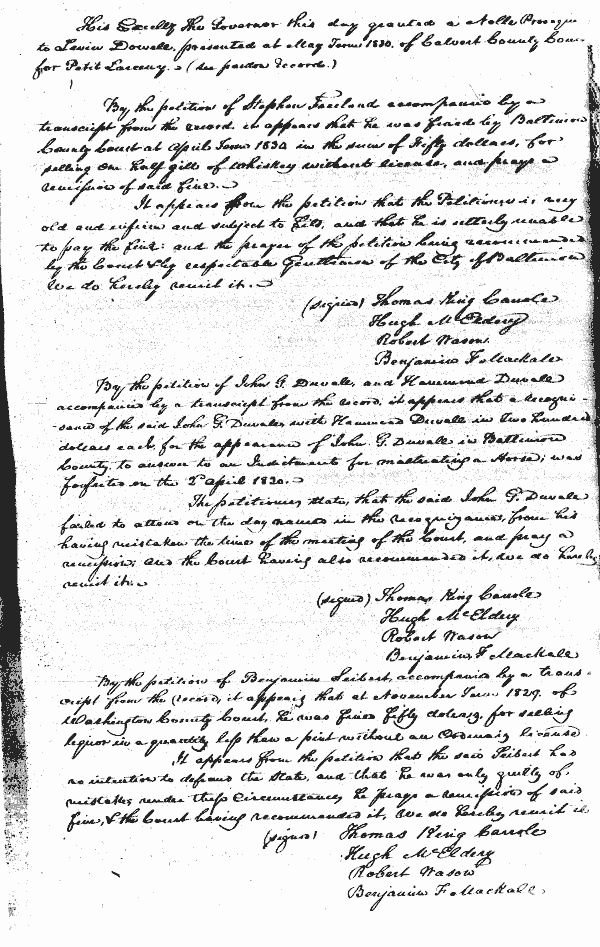 His Excelly the Governor this day granted a Nolle Prosequi
to Levin Dowell, presented at May Term 1830, of Calvert County Cour
for Petit Larceny. (see pardon record.)
By the petition of Stephen Freeland accompanied by a
transcript from the record, it appears that he was fined by Baltimore
County Court at April Term 1830 in the sum of Fifty dollars, for
selling one half gill of whiskey without license, and prays a
remission of said fine.
It appears from the petition that the Petitioner is very
old and infirm and subject to Fits, and that he is utterly unable
to pay the fine: and the prayer of the petition having recommended
by the Court & by respectable Gentlemen of the City of Baltimore
We do hereby remit it.
(signed) Thomas King Carroll
Hugh McEldery
Robert Nason.
Benjamin F. Mackall
By the petition of John G. Duvall, and Hammond Duvall
accompanied by a transcript from the record, it appears that a recogni-
sance of the said John G. Duvall, with Hammond Duvall in Two hundred
dollars each, for the appearance of John G. Duvall in Baltimore
County, to answer to an Indictment for maltreating a Horse, was
forfeited on the 2d April 1830.
The petitioners, state, that the said John G. Duvall
failed to attend on the day named in the recognizance, from his
having mistaken the time of the meeting of the Court, and pray a
remission; and the Court having also recommended it, we do hereby
remit it.
(signed) Thomas King Carroll
Hugh McEldery
Robert Nason
Benjamin F Mackall
By the petition of Benjamin Seibert, accompanied by a trans-
cript from the record, it appears that at November Term 1829, of
Washington County Court, he was fined fifty dollars, for selling
liquor in a quantity less than a pint without an Ordinary license.
It appears from the petition that the said Seibert had
no intention to defraud the State, and that he was only guilty of
mistake, under these Circumstances he prays a remission of said
fine, & the Court having recommended it, We do hereby remit it
(signed) Thomas King Carroll
Hugh McEldery
Robert Nason
Benjamin F. Mackall.